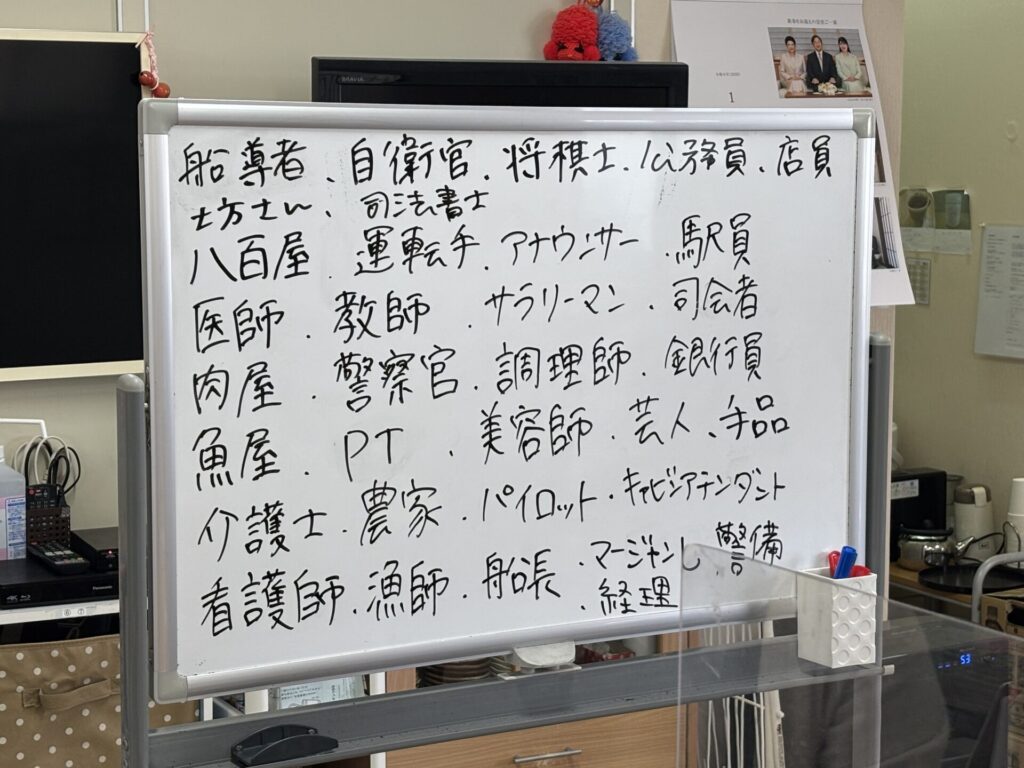 BRAVIA
1
船導者、自衛官、将棋士、公務員、店員
土方さん、司法書士
八百屋、運転手、アナウンサー、駅員
医師、教師、サラリーマン、司会者
肉屋、警察官、調理師、銀行員
魚屋、PT、美容師、芸人、手品
介護士、農家、パイロット、キャビンアテンダント
看護師、漁師、船長、マージャン し 警備
経理
Panasonic
53